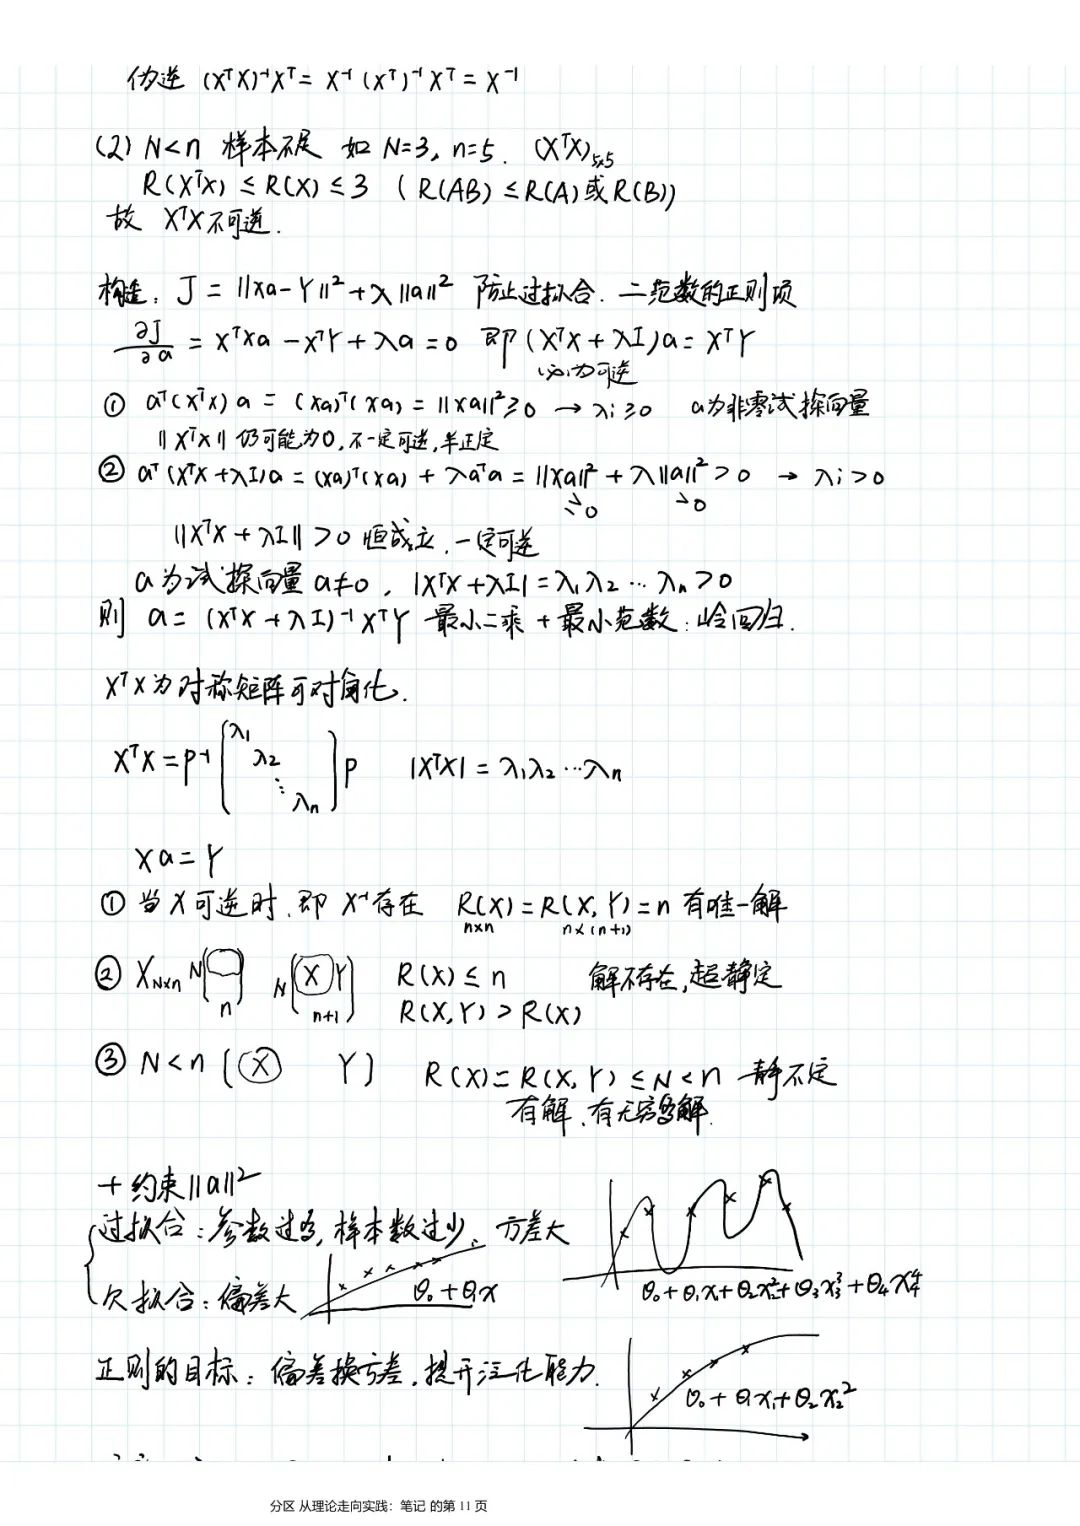 伪逆 (XᵀX)⁻¹Xᵀ = X⁻¹(Xᵀ)⁻¹Xᵀ = X⁻¹
(2) N<n 样本不足 如 N=3, n=5. (XᵀX)₅ₓ₅
R(XᵀX) ≤ R(X) ≤ 3 ( R(AB) ≤ R(A) 或 R(B))
故 XᵀX 不可逆.
构造: J = ||Xa-Y||² + λ||a||² 防止过拟合. 二范数的正则项
∂J/∂a = XᵀXa - XᵀY + λa = 0 即 (XᵀX + λI)a = XᵀY
必为可逆
① aᵀ(XᵀX)a = (Xa)ᵀ(Xa) = ||Xa||² ≥ 0 → λi ≥ 0 a为非零试探向量
||XᵀX|| 仍可能为0, 不一定可逆, 半正定
② aᵀ(XᵀX+λI)a = (Xa)ᵀ(Xa) + λaᵀa = ||Xa||² + λ||a||² > 0 → λi > 0
≥0 >0
||XᵀX + λI|| > 0 恒成立. 一定可逆
a为试探向量 a≠0, |XᵀX+λI| = λ₁λ₂…λₙ > 0
则 a = (XᵀX+λI)⁻¹XᵀY 最小二乘 + 最小范数: 岭回归.
XᵀX为对称矩阵可对角化.
XᵀX = P⁻¹ [λ₁ λ₂ ⋱ λₙ] P |XᵀX| = λ₁λ₂…λₙ
Xa = Y
① 当X可逆时, 即 X⁻¹存在 R(X) = R(X, Y) = n 有唯一解
n×n n×(n+1)
② X_{N×n} N( ) N(X Y) R(X) ≤ n 解不存在, 超静定
n n+1 R(X,Y) > R(X)
③ N<n (X Y) R(X) = R(X, Y) ≤ N < n 静不定
有解, 有无穷多解.
+ 约束||a||²
过拟合: 参数过多, 样本数过少、方差大
欠拟合: 偏差大 θ₀+θ₁x
θ₀+θ₁x₁+θ₂x₂²+θ₃x₃³+θ₄x₄⁴
正则的目标: 偏差换方差, 提升泛化能力.
θ₀+θ₁x₁+θ₂x₂²
分区 从理论走向实践：笔记 的第 11 页